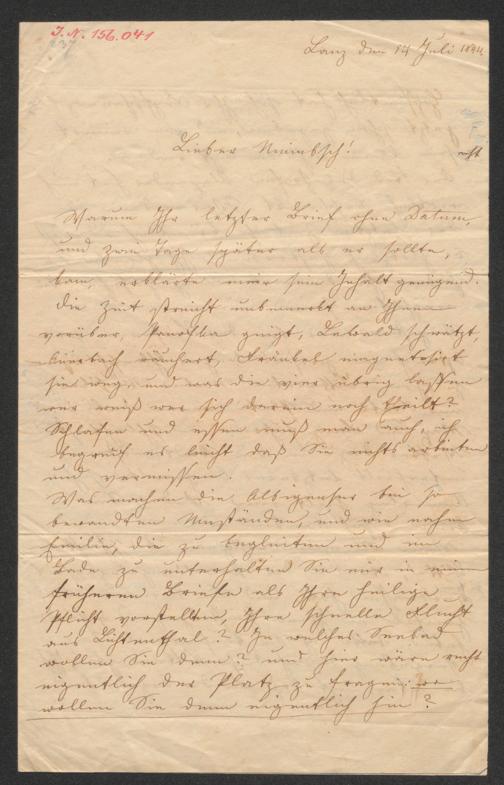 I. N. 156.041
237
Lanz den 14 Juli 1844
Lieber Niembsch!
Warum Ihr letzter Brief ohne Datum,
und zwei Tage später als er sollte,
kam, erklärte mir sein Inhalt genügend.
Die Zeit streicht unbemerkt an Ihnen
vorüber, Panofka geigt, Lewald schwätzt,
Auerbach räuchert, Fränkel magnetisirt
sie weg, und was die vier übrig lassen
wer weiß wer sich darein noch theilt?
Schlafen und essen muß man auch, ich
begreif es leicht daß Sie nichts arbeiten
und vermissen.
Was machen die Albigenser bei so
bewandten Umständen, und wie nahm
Emilie, die zu begleiten und im
Bade zu unterhalten Sie mir in einem
früheren Briefe als Ihre heilige
Pflicht vorstellten, Ihre schnelle Flucht
aus Lichtenthal? In welches Seebad
wollen Sie denn? und hier wäre recht
eigentlich der Platz zu fragen: wo
wollen Sie denn eigentlich hin?